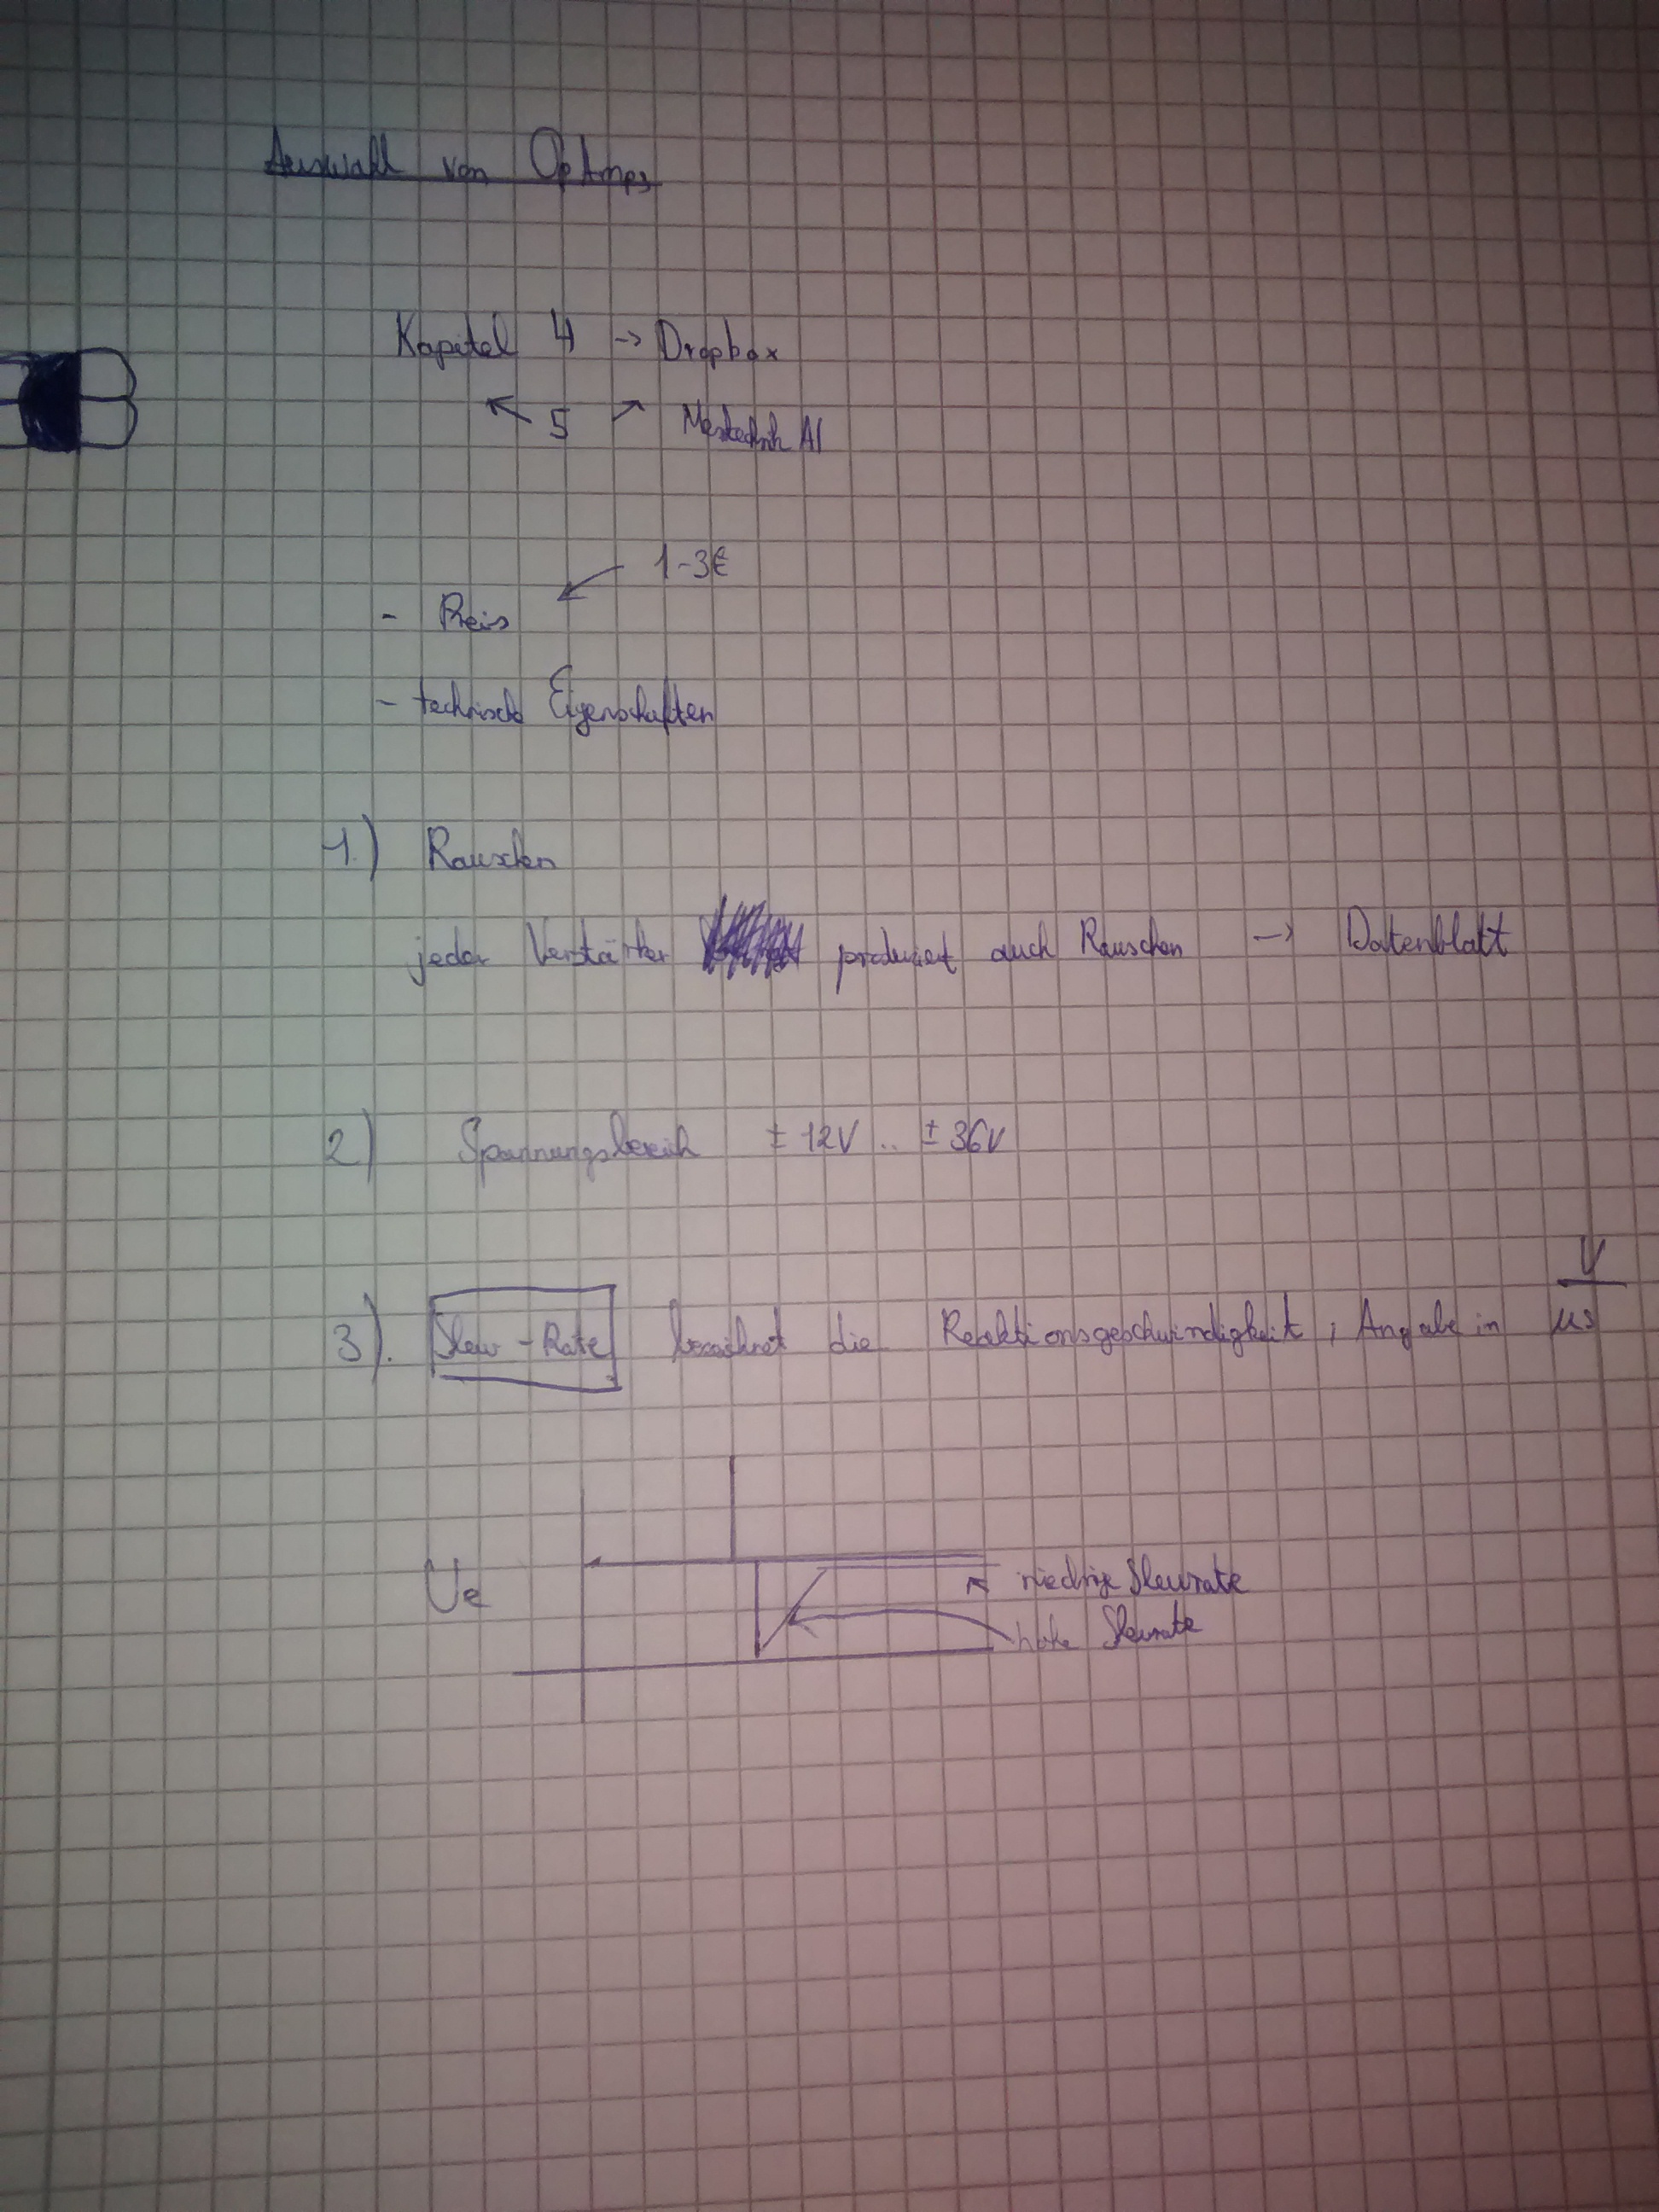 Auswahl von OpAmps
Kapitel 4 -> Dropbox
5 Messtechnik AI
1-3€
- Preis
- technische Eigenschaften
1.) Rauschen
jeder Verstärker produziert auch Rauschen -> Datenblatt
2) Spannungsbereich ± 12V .. ± 36V
3). Slew-Rate bezeichnet die Reaktionsgeschwindigkeit, Angabe in V/µs
Ue
niedrige Slewrate
hohe Slewrate